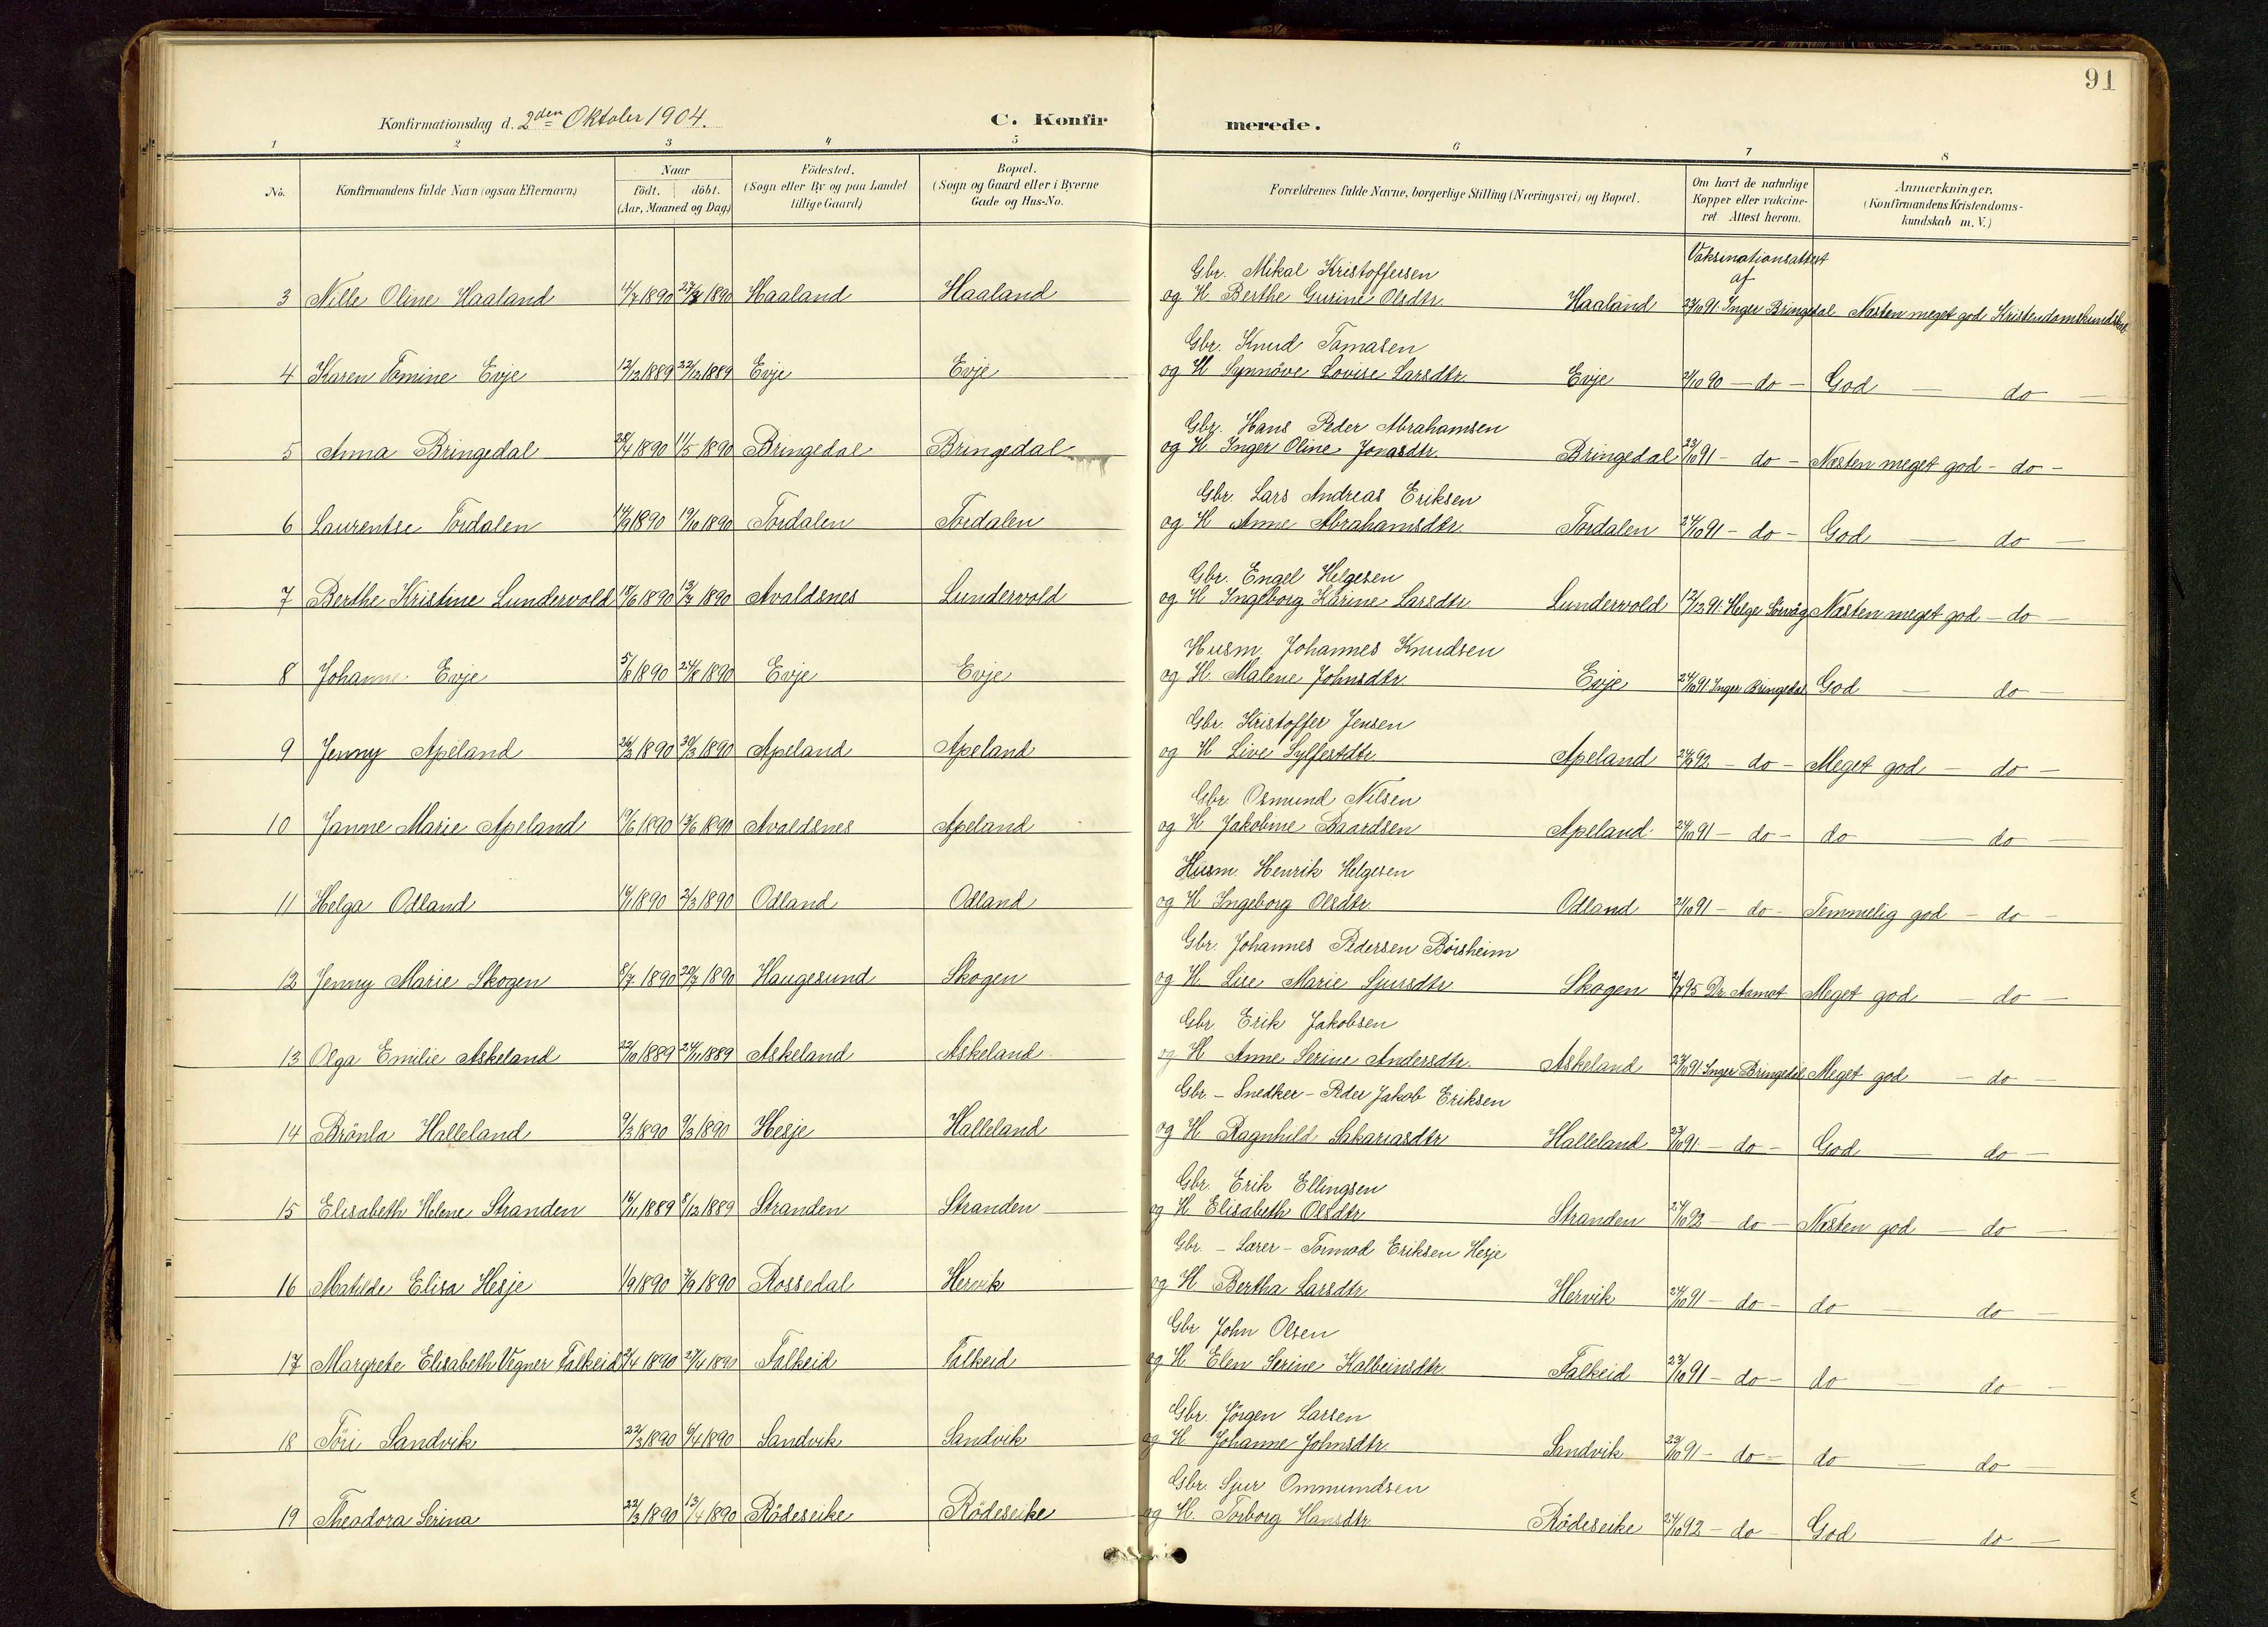 91
Konfirmationsdag d. 2den Oktober 1904.
C. Konfirmerede.
1 2 3 4 5 6 7 8
No.
Konfirmandens fulde Navn (ogsaa Efternavn)
Naar
født. døbt.
(Aar, Maaned og Dag.)
Födested.
(Sogn eller By og paa Landet
tillige Gaard)
Bopæl.
(Sogn og Gaard eller i Byerne
Gade og Hus-No.
Forældrenes fulde Navne, borgerlige Stilling (Næringsvei) og Bopæl.
Om havt de naturlige
Kopper eller vakcine-
ret. Attest herom.
Anmærkninger.
(Konfirmandens Kristendoms-
kundskab m. V.)
Vaksinationsattest
af
Gbr. Mikal Kristoffersen
3 Nille Oline Haaland 1890 1890 Haaland Haaland og H. Berthe Gurine Olsdtr. Haaland 23/10 91. Inger Bringedal Næsten meget god Kristendomskundskab
Gbr. Knud Tomasen
4 Karen Tomine Evje 12/12 1889 22/12 1889 Evje Evje og H. Synnöve Lovise Larsdtr. Evje 90 - do - God - do -
Gbr. Hans Peder Abrahamsen
5 Anna Bringedal 28/4 1890 11/5 1890 Bringedal Bringedal og H. Inger Oline Jonasdtr. Bringedal 23/10 91 - do - Næsten meget god - do -
Gbr. Lars Andreas Eriksen
6 Laurentse Tordalen 14/9 1890 19/10 1890 Tordalen Tordalen og H. Anne Abrahamsdtr. Tordalen 24/10 91 - do - God - do -
Gbr. Engel Helgesen
7 Berthe Kristine Lundervold 1890 13/7 1890 Avaldsnes Lundervold og H. Ingeborg Karine Larsdtr. Lundervold 12/12 91. Helge Næsten meget god - do -
Husm. Johannes Knudsen
8 Johanne Evje 5/8 1890 24/8 1890 Evje Evje og H. Malene Johnsdtr. Evje 24/10 91. Inger Bringedal God - do -
Gbr. Kristoffer Jensen
9 Jenny Apeland 1890 30/3 1890 Apeland Apeland og H. Live Sylfestdtr. Apeland 92 - do - Meget god - do -
Gbr. Osmund Nilsen
10 Janne Marie Apeland 1890 1890 Avaldsnes Apeland og H. Jakobine Baardsen Apeland 24/10 91 - do - do - do -
Husm. Henrik Helgesen
11 Helga Odland 1890 2/3 1890 Odland Odland og H. Ingeborg Olsdtr. Odland 91 - do - Temmelig god - do -
Gbr. Johannes Pedersen Börsheim
12 Jenny Marie Skogen 8/7 1890 20/7 1890 Haugesund Skogen og H. Lise Marie Sjursdtr. Skogen 95 Dr. Aamot Meget god - do -
Gbr. Erik Jakobsen
13 Olga Emilie Askeland 22/10 1889 24/11 1889 Askeland Askeland og H. Anne Serine Andersdtr. Askeland 23/10 91. Inger Bringedal Meget god - do -
Gbr. - Snedker - Peder Jakob Eriksen
14 Brönla Halleland 9/3 1890 9/3 1890 Hesje Halleland og H. Ragnhild Sakariasdtr. Halleland 23/10 91. - do - God - do -
Gbr. Erik Ellingsen
15 Elisabeth Helene Stranden 16/11 1889 8/12 1889 Stranden Stranden og H. Elisabeth Olsdtr. Stranden 24/10 92 - do - Næsten god - do -
Gbr. - Lærer - Tormod Eriksen Hesje
16 Matilde Elisa Hesje 1/9 1890 7/9 1890 Rossedal Hervik og H. Bertha Larsdtr. Hervik 24/10 91 - do - do - do -
Gbr. John Olsen
17 Margrete Elisabeth Vegner Falkeid 2/4 1890 27/4 1890 Falkeid Falkeid og H. Elen Serine Kalbeinsdtr. Falkeid 23/10 91 - do - do - do -
Gbr. Jörgen Larsen
18 Töri Sandvik 22/3 1890 6/4 1890 Sandvik Sandvik og H. Johanne Johnsdtr. Sandvik 23/10 91 - do - do - do -
Gbr. Sjur Ommundsen
19 Theodora Serina 22/3 1890 13/4 1890 Rödeseike Rödeseike og H. Torborg Hansdtr. Rödeseike 24/10 92 - do - God - do -